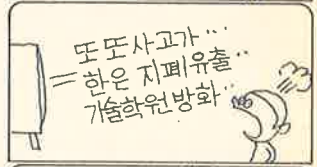 또 또 사고가…
= 한은 지폐유출‥
기술학원 방화‥